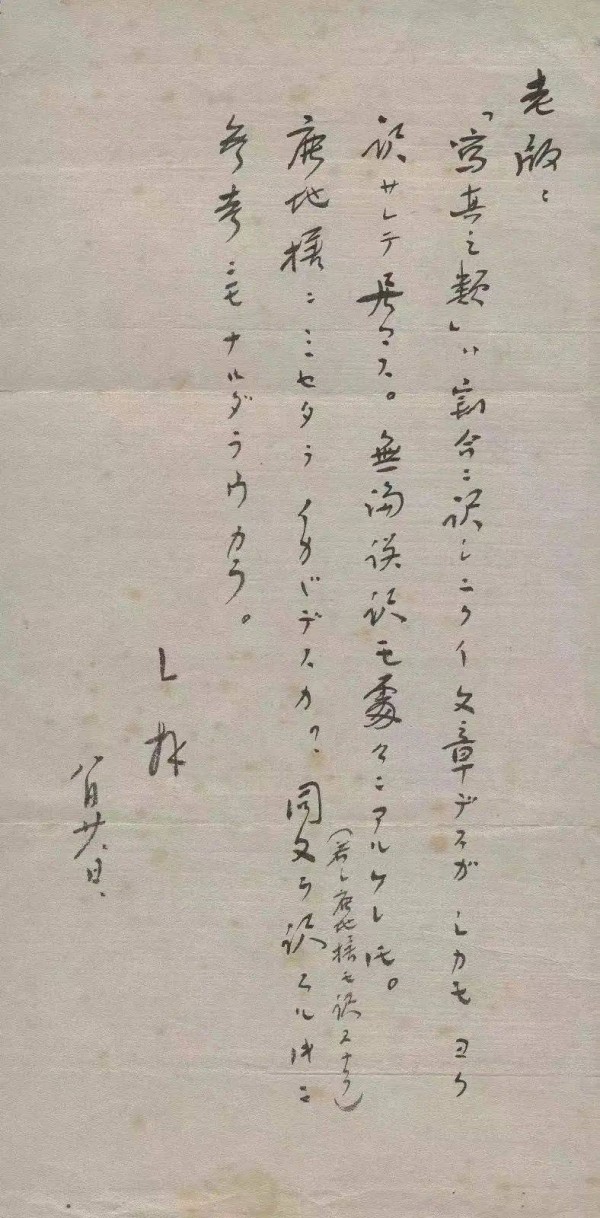 老版:
「寫真之類」ハ割合ニ訳シニクイ文章デスガシカモヨク
訳サレテ居マス。無論誤訳モ處々ニアルケレドモ。
(若シ鹿地様モ訳スナラ)
鹿地様ニミセタライカガデスカ? 同文ヲ訳スル時ニ
参考ニモナルダラウカラ。
L 拝
八月廿八日、